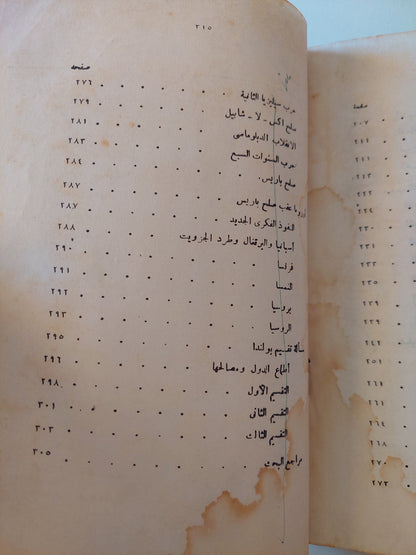 ٣١٥
صفحة
حرب سيليزيا الثانية ٢٧٦
صلح اكس - لا - شابيل ٢٧٩
الانقلاب الدبلوماسى ٢٨١
حرب السنوات السبع ٢٨٣
صلح باريس ٢٨٤
أوروبا عقب صلح باريس ٢٨٧
النفوذ الفكرى الجديد ٢٨٧
أسبانيا والبرتغال وطرد الجزويت ٢٨٨
فرنسا ٢٩٠
النمسا ٢٩١
بروسيا ٢٩٢
الروسيا ٢٩٣
مسألة تقسيم بولندا ٢٩٥
أطماع الدول ومصالحها ٢٩٦
التقسيم الأول ٢٩٨
التقسيم الثانى ٣٠١
التقسيم الثالث ٣٠٣
مراجع البحث ٣٠٥
صفحة
٢٠٧
٢١١
٢١١
٢٢٤
٢٣٠
٢٣٣
٢٣٥
٢٣٩
٢٤٢
٢٥١
٢٦١
٢٦٤
٢٦٨
٢٧٠
٢٧٣